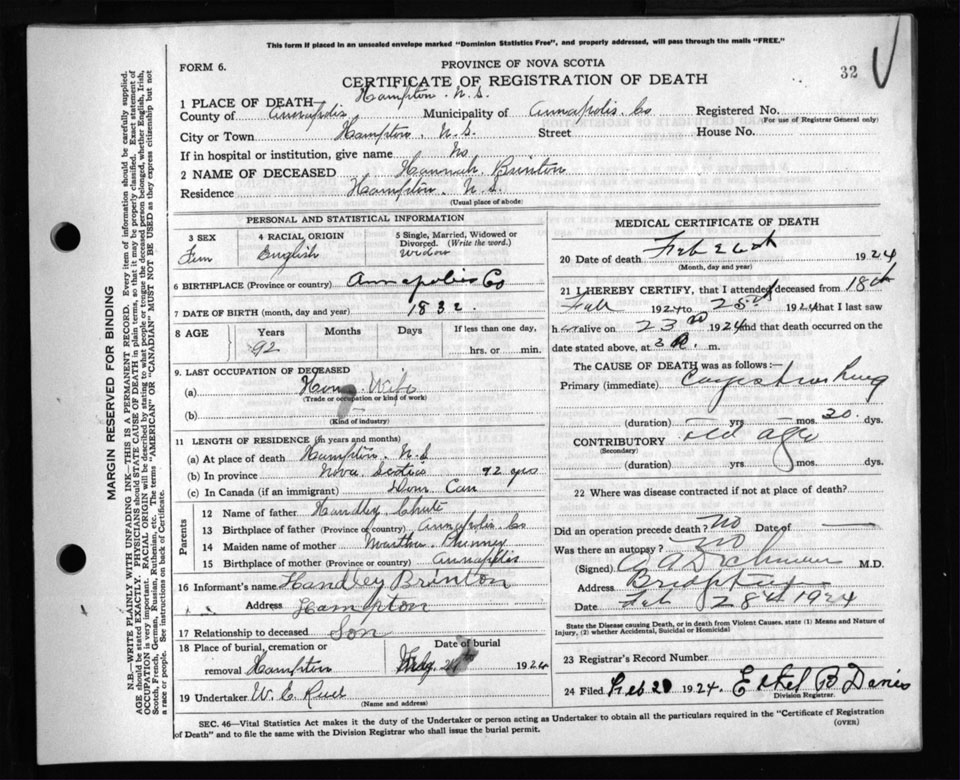 This form if placed in an unsealed envelope marked "Dominion Statistics Free", and properly addressed, will pass through the mails "FREE."
FORM 6.
PROVINCE OF NOVA SCOTIA
CERTIFICATE OF REGISTRATION OF DEATH
32
1 PLACE OF DEATH Hampton. N.S.
County of Annapolis Municipality of Annapolis. Co Registered No.
(For use of Registrar General only)
City or Town Hampton. N.S. Street House No.
If in hospital or institution, give name No
2 NAME OF DECEASED Hannah. Brinton
Residence Hampton. N.S.
(Usual place of abode)
PERSONAL AND STATISTICAL INFORMATION
3 SEX 4 RACIAL ORIGIN 5 Single, Married, Widowed or Divorced. (Write the word.)
Fem English Widow
6 BIRTHPLACE (Province or country) Annapolis Co
7 DATE OF BIRTH (month, day and year) 1832.
8 AGE Years Months Days If less than one day,
92 hrs. or min.
9. LAST OCCUPATION OF DECEASED
(a) Wife
(Trade or occupation or kind of work)
(b)
(Kind of industry)
11 LENGTH OF RESIDENCE (in years and months)
(a) At place of death Hampton. N.S
(b) In province Nova Scotia 92 yrs
(c) In Canada (if an immigrant) Dom Can
Parents
12 Name of father Handley Chute
13 Birthplace of father (Province or country) Annapolis. Co
14 Maiden name of mother
15 Birthplace of mother (Province or country) Annapolis
16 Informant's name Handley Brinton
Address Hampton
17 Relationship to deceased Son
18 Place of burial, cremation or removal Hampton
Date of burial 1924
19 Undertaker W. C.
(Name and address)
MEDICAL CERTIFICATE OF DEATH
20 Date of death Feb 1924
(Month, day and year)
21 I HEREBY CERTIFY, that I attended deceased from 18th
1924 to 1924 that I last saw
h alive on 23 1924 and that death occurred on the
date stated above, at 3 m.
The CAUSE OF DEATH was as follows:—
Primary (immediate) Lung
(duration) yrs mos. 20. dys.
CONTRIBUTORY old age
(Secondary)
(duration) yrs mos. dys.
22 Where was disease contracted if not at place of death?
Did an operation precede death? No Date of
Was there an autopsy? No
(Signed) M.D.
Address
Date Feb 28th 1924
State the Disease causing Death, or in death from Violent Causes, state (1) Means and Nature of Injury, (2) whether Accidental, Suicidal or Homicidal
23 Registrar's Record Number
24 Filed Feb 1924. Ethel B
Division Registrar.
SEC. 46—Vital Statistics Act makes it the duty of the Undertaker or person acting as Undertaker to obtain all the particulars required in the "Certificate of Registration
of Death" and to file the same with the Division Registrar who shall issue the burial permit.
(OVER)
MARGIN RESERVED FOR BINDING
N.B.—WRITE PLAINLY WITH UNFADING INK—THIS IS A PERMANENT RECORD. Every item of information should be carefully supplied.
AGE should be stated EXACTLY. PHYSICIANS should STATE CAUSE OF DEATH in plain terms, so that it may be properly classified. Exact statement of
OCCUPATION is very important. RACIAL ORIGIN will be described by stating to what people or tongue the deceased person belonged, whether English, Irish,
Scotch, French, German, Russian, Ruthenian, etc. The terms "AMERICAN" OR "CANADIAN" MUST NOT BE USED as they express citizenship but not
a race or people. See instructions on back of Certificate.